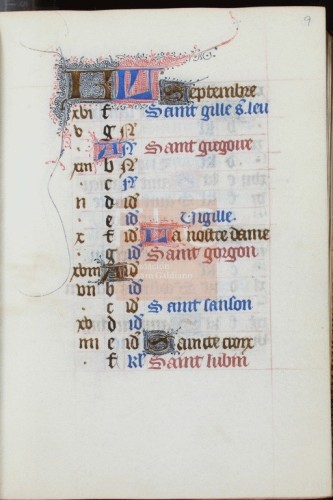 9
KL Septembre
xvi f Saint gille s. leu
v g N
A N Saint gregoire
xiii b N
c N
ii d id
e id vigille
x f id La nostre dame
g id Saint gorgon
xviii A id
vii b id
c id Saint sanson
xv d id
iiii e id Saincte croix
f kl Saint lubin